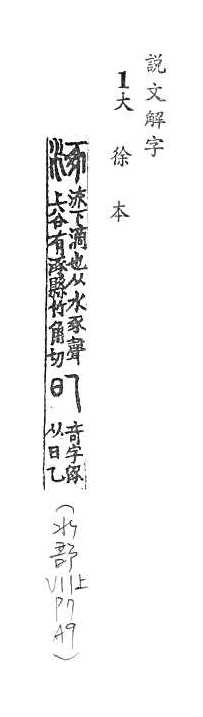 説文解字
1大徐本
流下滴也从水豖聲
上谷有涿縣竹角切
奇字涿
从日乙
(水部
VII上
P7
A9)